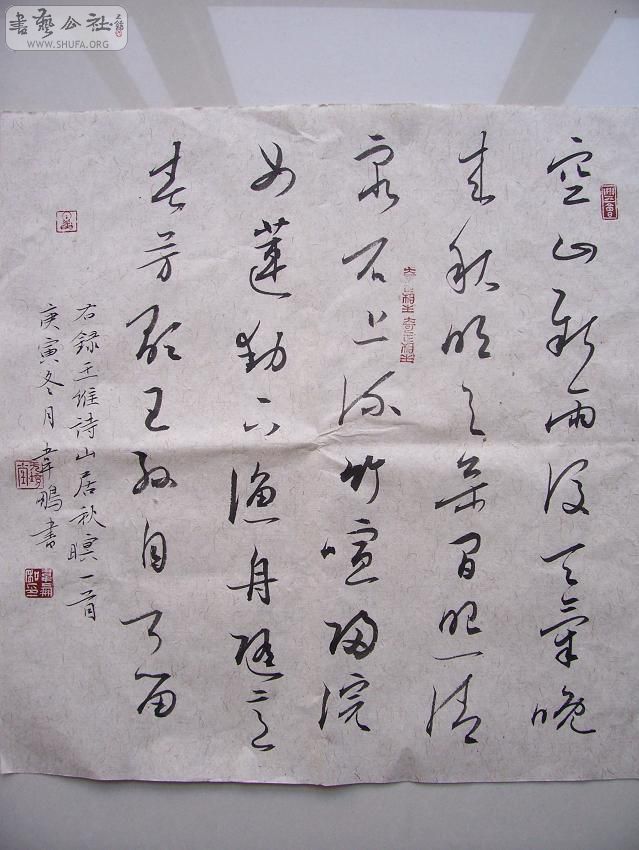 書藝公社
www.SHUFA.ORG
空山新雨後天氣晚
来秋明月松間照清
泉石上流竹喧歸浣
女蓮動下漁舟隨意
春芳歇王孫自可留
右録王維詩山居秋暝一首
庚寅冬月韋鵬書